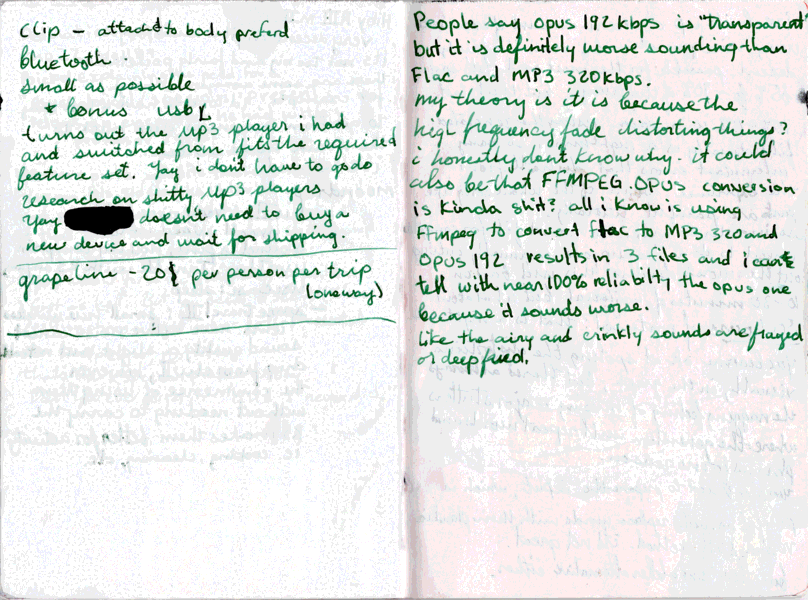 Clip - attached to body preferd
bluetooth.
small as possible
* bonus usb
turns out the MP3 player i had
and switched from fits the required
feature set. Yay i dont have to go do
research on shitty MP3 players
Yay doesn't need to buy a
new device and wait for shipping.
grapeline - 20$ per person per trip
(oneway)
People say opus 192 kbps is "transparent"
but it is definitely worse sounding than
Flac and MP3 320kbps.
my theory is it is because the
high frequency fade distorting things?
i honestly dont know why. it could
also be that FFMPEG.OPUS conversion
is kinda shit? all i know is using
FFmpeg to convert flac to MP3 320 and
OPUS 192 results in 3 files and i can
tell with near 100% reliabilty the opus one
because it sounds worse.
Like the airy and crinkly sounds are frayed
or deepfried.